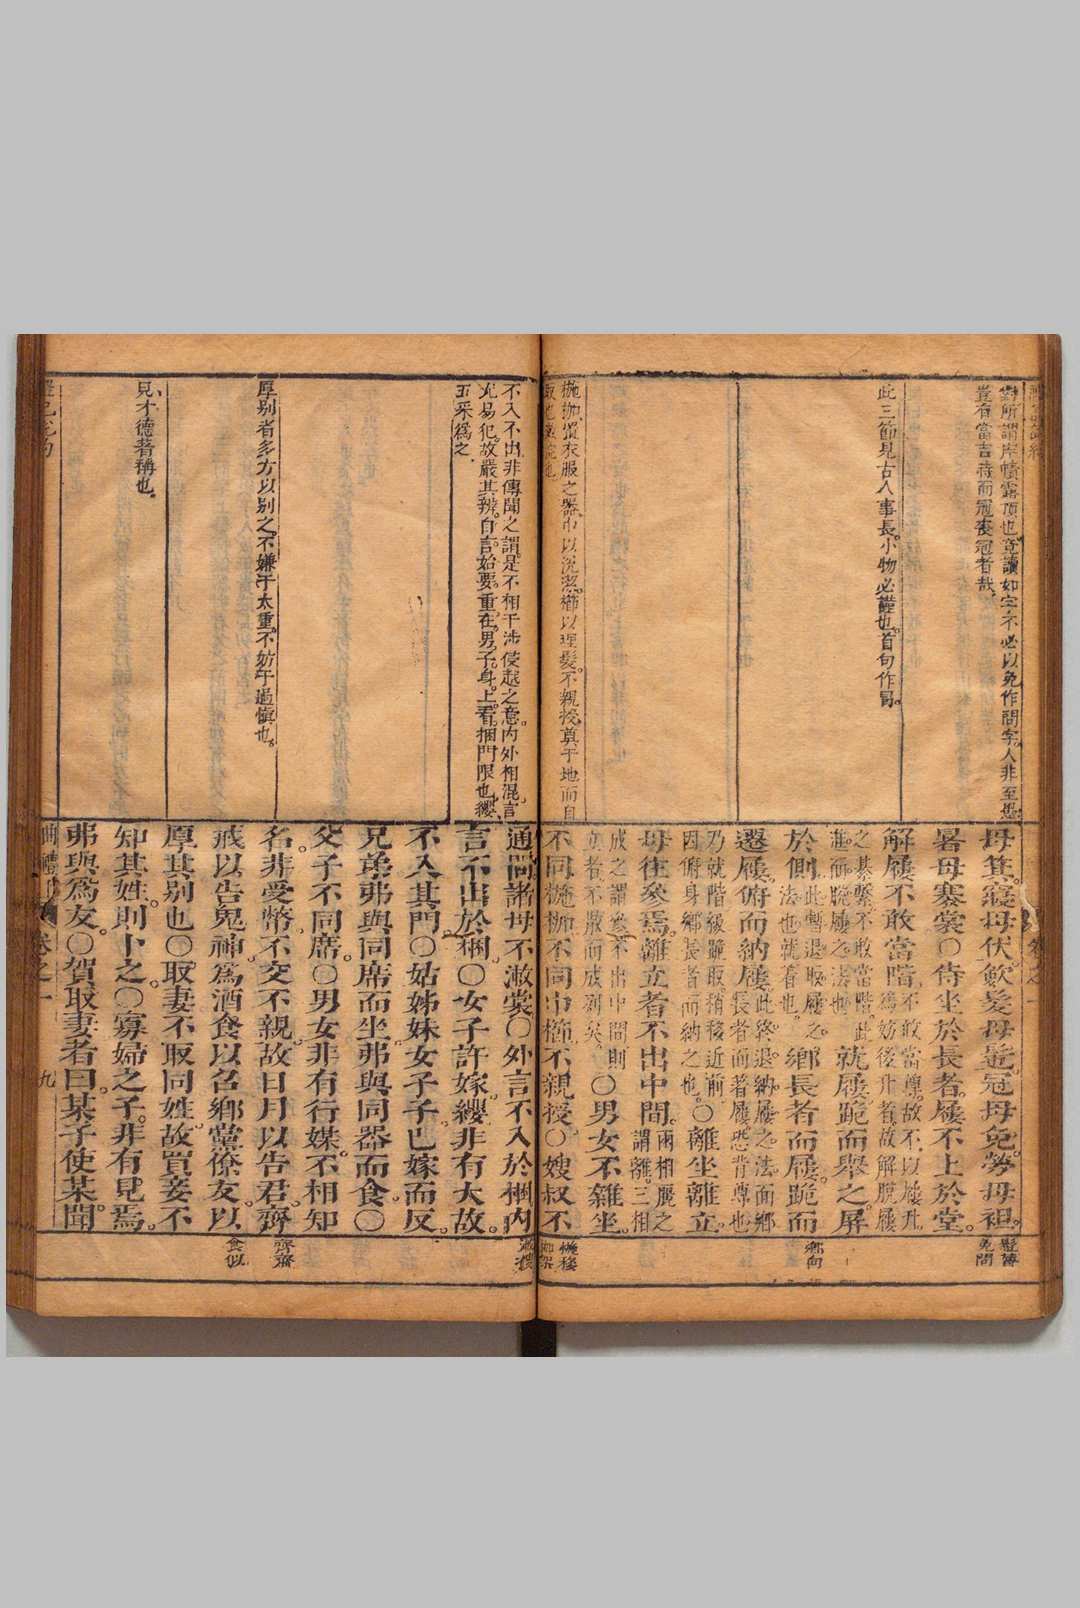 對所謂岸幘露頂也竟讀如字不必以免作問字人非至愚
豈有當吉待而冠喪冠者哉
此三節見古人事長小物必謹也首句作冒
椸枷置衣服之器巾以浣潔櫛以理髮不親授奠于地而自
取也
母箕寢母伏歛髮母髢冠母免勞母袒
暑母褰裳○侍坐於長者屨不上於堂
解屨不敢當階
之綦繫不敢當階此
就屨跪而舉之屏
於側
鄉長者而屨跪而
遷屨俯而納屨此終退納屨之法面鄉
長者而著屨恐背尊也
乃就階級跪取稍移近前
因俯身鄉長者而納之也○離坐離立
母往參焉離立者不出中間兩相麗之
謂離三相
成之謂參不出中間則
○男女不雜坐
不同椸枷不同巾櫛不親授○嫂叔不
髢第
免問
鄉向
椸移
不入不出非傳聞之謂是不相干涉侵越之意內外相混言
尤易犯故嚴其辨自言始要重在男子身上看捆門限也纓
五采爲之
厚别者多方以别之不嫌于太重不妨于過慎也
見才德著稱也
通問諸母不漱裳○外言不入於梱內
言不出於梱○女子許嫁纓非有大故
不入其門○姑姊妹女子子已嫁而反
兄弟弗與同席而坐弗與同器而食○
父子不同席○男女非有行媒不相知
名非受幣不交不親故日月以告君齊
戒以告鬼神爲酒食以召鄉黨僚友以
厚其别也○取妻不取同姓故買妾不
知其姓則卜之○寡婦之子非有見焉
弗與爲友○賀取妻者曰某子使某聞
齊齋
食似
卷之一
九